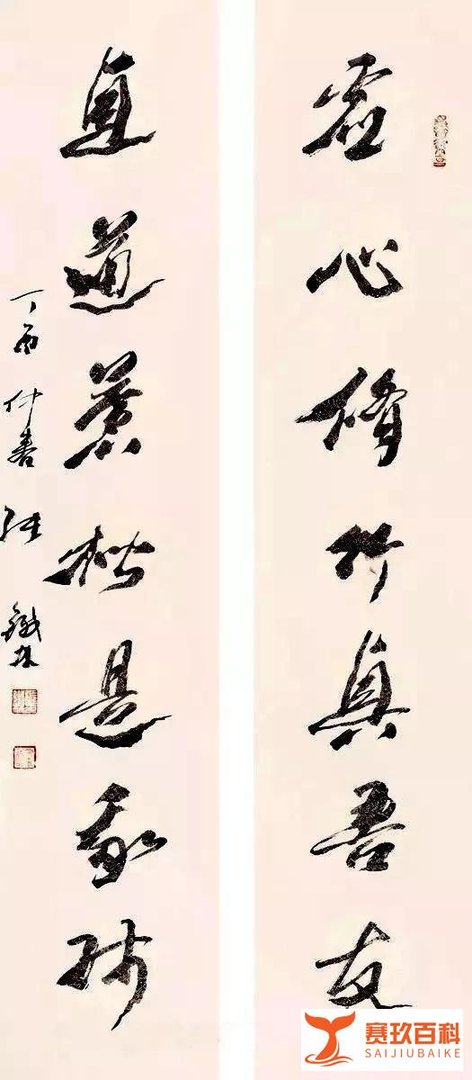 虚心脩竹真吾友
直道黄楷是我師
丁酉仲春 張鐵林
赛玖百科
SAIJIUBAIKE